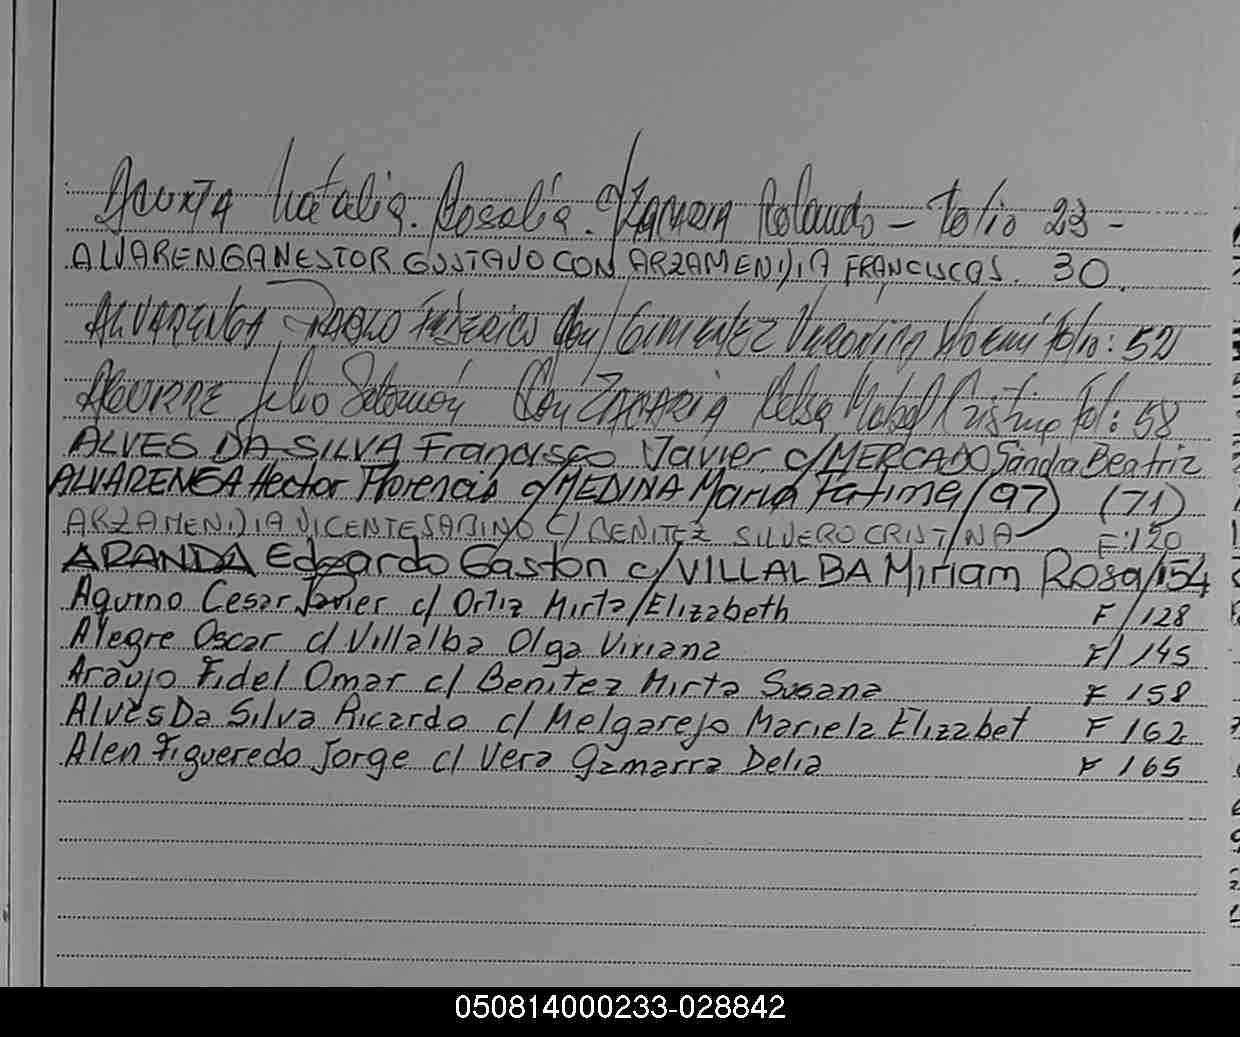 Acuxta Natalia. Rosalía. c/ Zamaria Rolando - Folio 23 -
ALVARENGA NESTOR GUSTAVO CON ARZAMENDIA FRANCISCAS. 30.
ALVARENGA PABLO Federico Con/ Gimenez Veronica Noemi folio: 52
AGUIRRE Julio Salomón Con ZAMARIA Nelsa Mabel Cristina Fol: 58
ALVES DA SILVA Francisco Javier c/ MERCADO Sandra Beatriz
ALVARENGA Hector Florencio c/ MEDINA Maria Fatima (97) (71)
ARZAMENDIA VICENTE SABINO C/ BENITEZ SILVERO CRISTINA F: 120
ARANDA Edgardo Gaston c/ VILLALBA Miriam Rosa/154
Aquino Cesar Javier c/ Ortiz Mirta/Elizabeth F/128
Alegre Oscar c/ Villalba Olga Viviana F/145
Araujo Fidel Omar c/ Benitez Mirta Susana F 158
Alves Da Silva Ricardo c/ Melgarejo Mariela Elizabet F 162
Alen Figueredo Jorge c/ Vera Gamarra Delia F 165
050814000233-028842